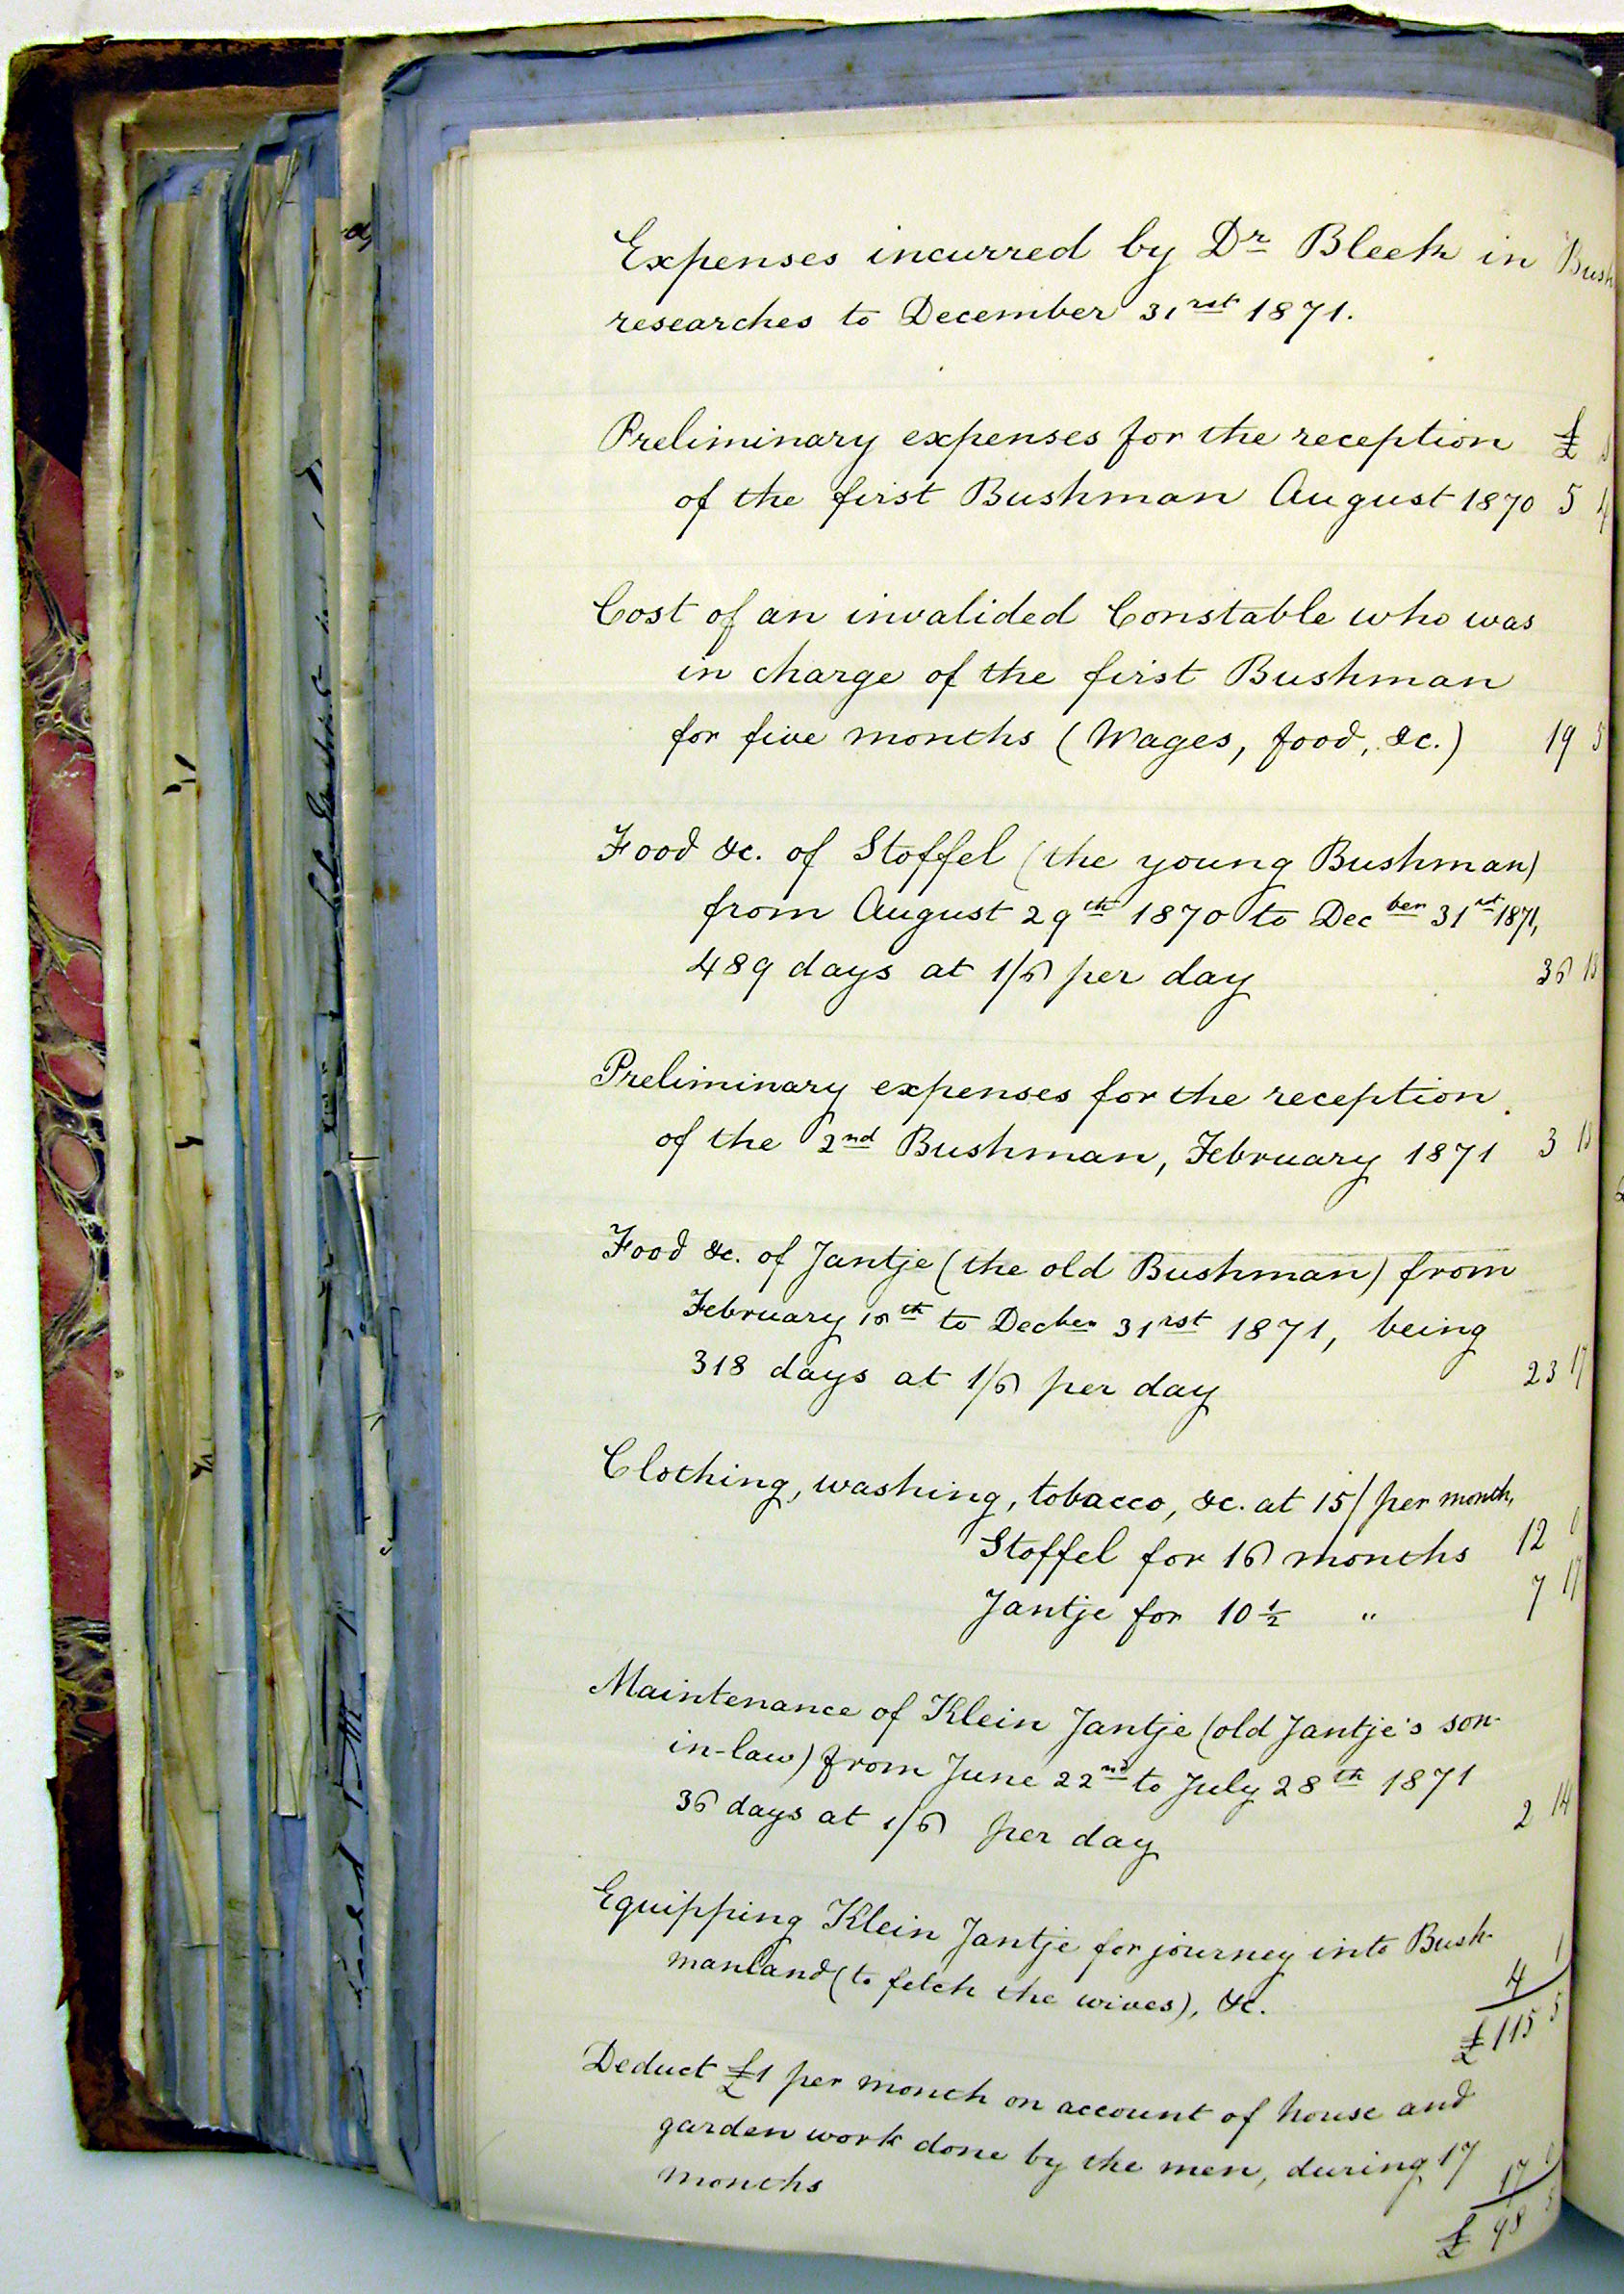 Expenses incurred by Dr Bleek in Bush
researches to December 31rst 1871.
Preliminary expenses for the reception £
of the first Bushman August 1870 5 4
Cost of an invalided Constable who was
in charge of the first Bushman
for five months (Wages, food, &c.) 19 5
Food &c. of Stoffel (the young Bushman)
from August 29th 1870 to Decber 31rst 1871,
489 days at 1/6 per day 36 13
Preliminary expenses for the reception
of the 2nd Bushman, February 1871 3 13
Food &c. of Jantje (the old Bushman) from
February 16th to Decber 31rst 1871, being
318 days at 1/6 per day 23 17
Clothing, washing, tobacco, &c. at 15/ per month,
Stoffel for 16 months 12 0
Jantje for 10 1/2 " 7 17
Maintenance of Klein Jantje (old Jantje's son-
in-law) from June 22nd to July 28th 1871
36 days at 1/6 per day 2 14
Equipping Klein Jantje for journey into Bush-
manland (to fetch the wives), &c. 4 1
£ 115 5
Deduct £1 per month on account of house and
garden work done by the men, during 17
months 17 0
£ 98 5